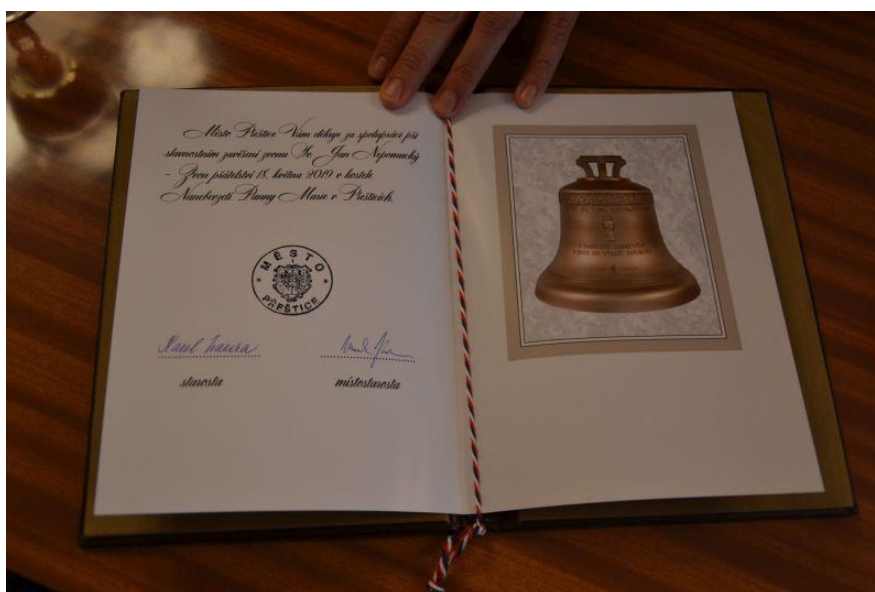 Město Přeštice Vám děkuje za spolupráci při
slavnostním zavěšení zvonu Sv. Jan Nepomucký
- Zvon přátelství 18. května 2019 v kostele
Nanebevzetí Panny Marie v Přešticích.
MĚSTO
PŘEŠTICE
starosta
místostarosta